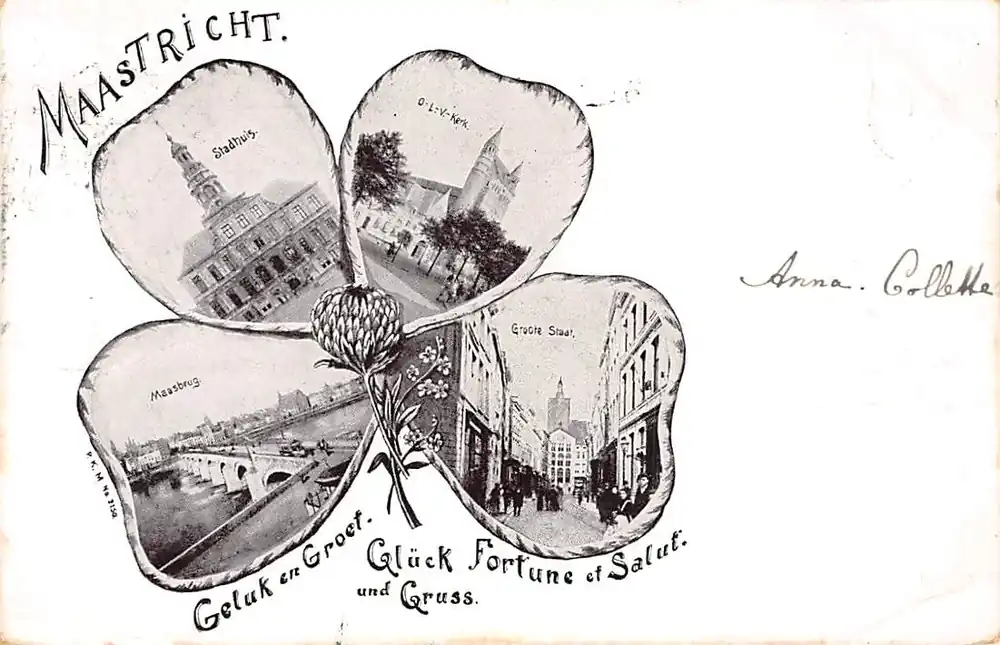 MAASTRICHT.
Stadhuis.
O-L-V-Kerk.
Anna. Collette
Groote Staat.
Maasbrug.
P.K.M No 2150.
Geluk en Groet.
Glück
und Gruss.
Fortune et Salut.